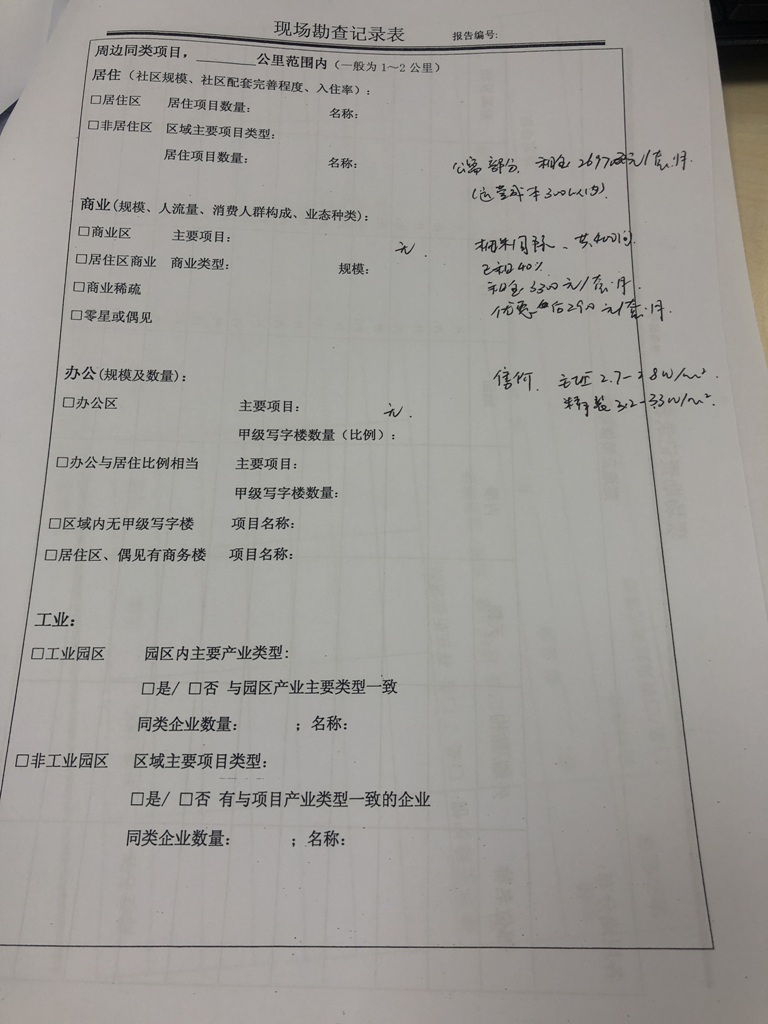 现场勘查记录表 报告编号:
周边同类项目，________公里范围内（一般为1～2公里）
居住（社区规模、社区配套完善程度、入住率）：
□居住区 居住项目数量： 名称：
□非居住区 区域主要项目类型：
居住项目数量： 名称：
公寓部分 租金 元/套·月
商业(规模、人流量、消费人群构成、业态种类)：
□商业区 主要项目： 无.
共400间.
□居住区商业 商业类型： 规模：
已租40%
□商业稀疏
租金3300元/套·月.
□零星或偶见
优惠 元/套·月.
办公(规模及数量)：
售价. 2.7- 8W/m².
□办公区 主要项目： 无.
3.2-3.3W/m².
甲级写字楼数量（比例）：
□办公与居住比例相当 主要项目：
甲级写字楼数量：
□区域内无甲级写字楼 项目名称：
□居住区、偶见有商务楼 项目名称：
工业：
□工业园区 园区内主要产业类型:
□是/ □否 与园区产业主要类型一致
同类企业数量： ；名称：
□非工业园区 区域主要项目类型：
□是/ □否 有与项目产业类型一致的企业
同类企业数量： ；名称：